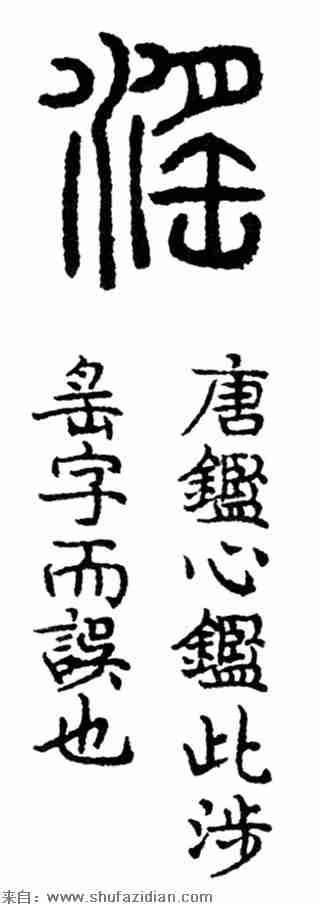 滛
唐鑑心鑑此涉
䍃字而誤也
来自：www.shufazidian.com